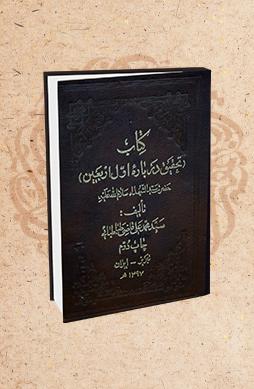 کتاب
(تحقیق درباره اول اربعین)
حضرت سیدالشهداء سلام الله علیه
تألیف:
سید محمد علی قاضی طباطبائی
چاپ دوم
تبریز - ایران
۱۳۹۷ هـ